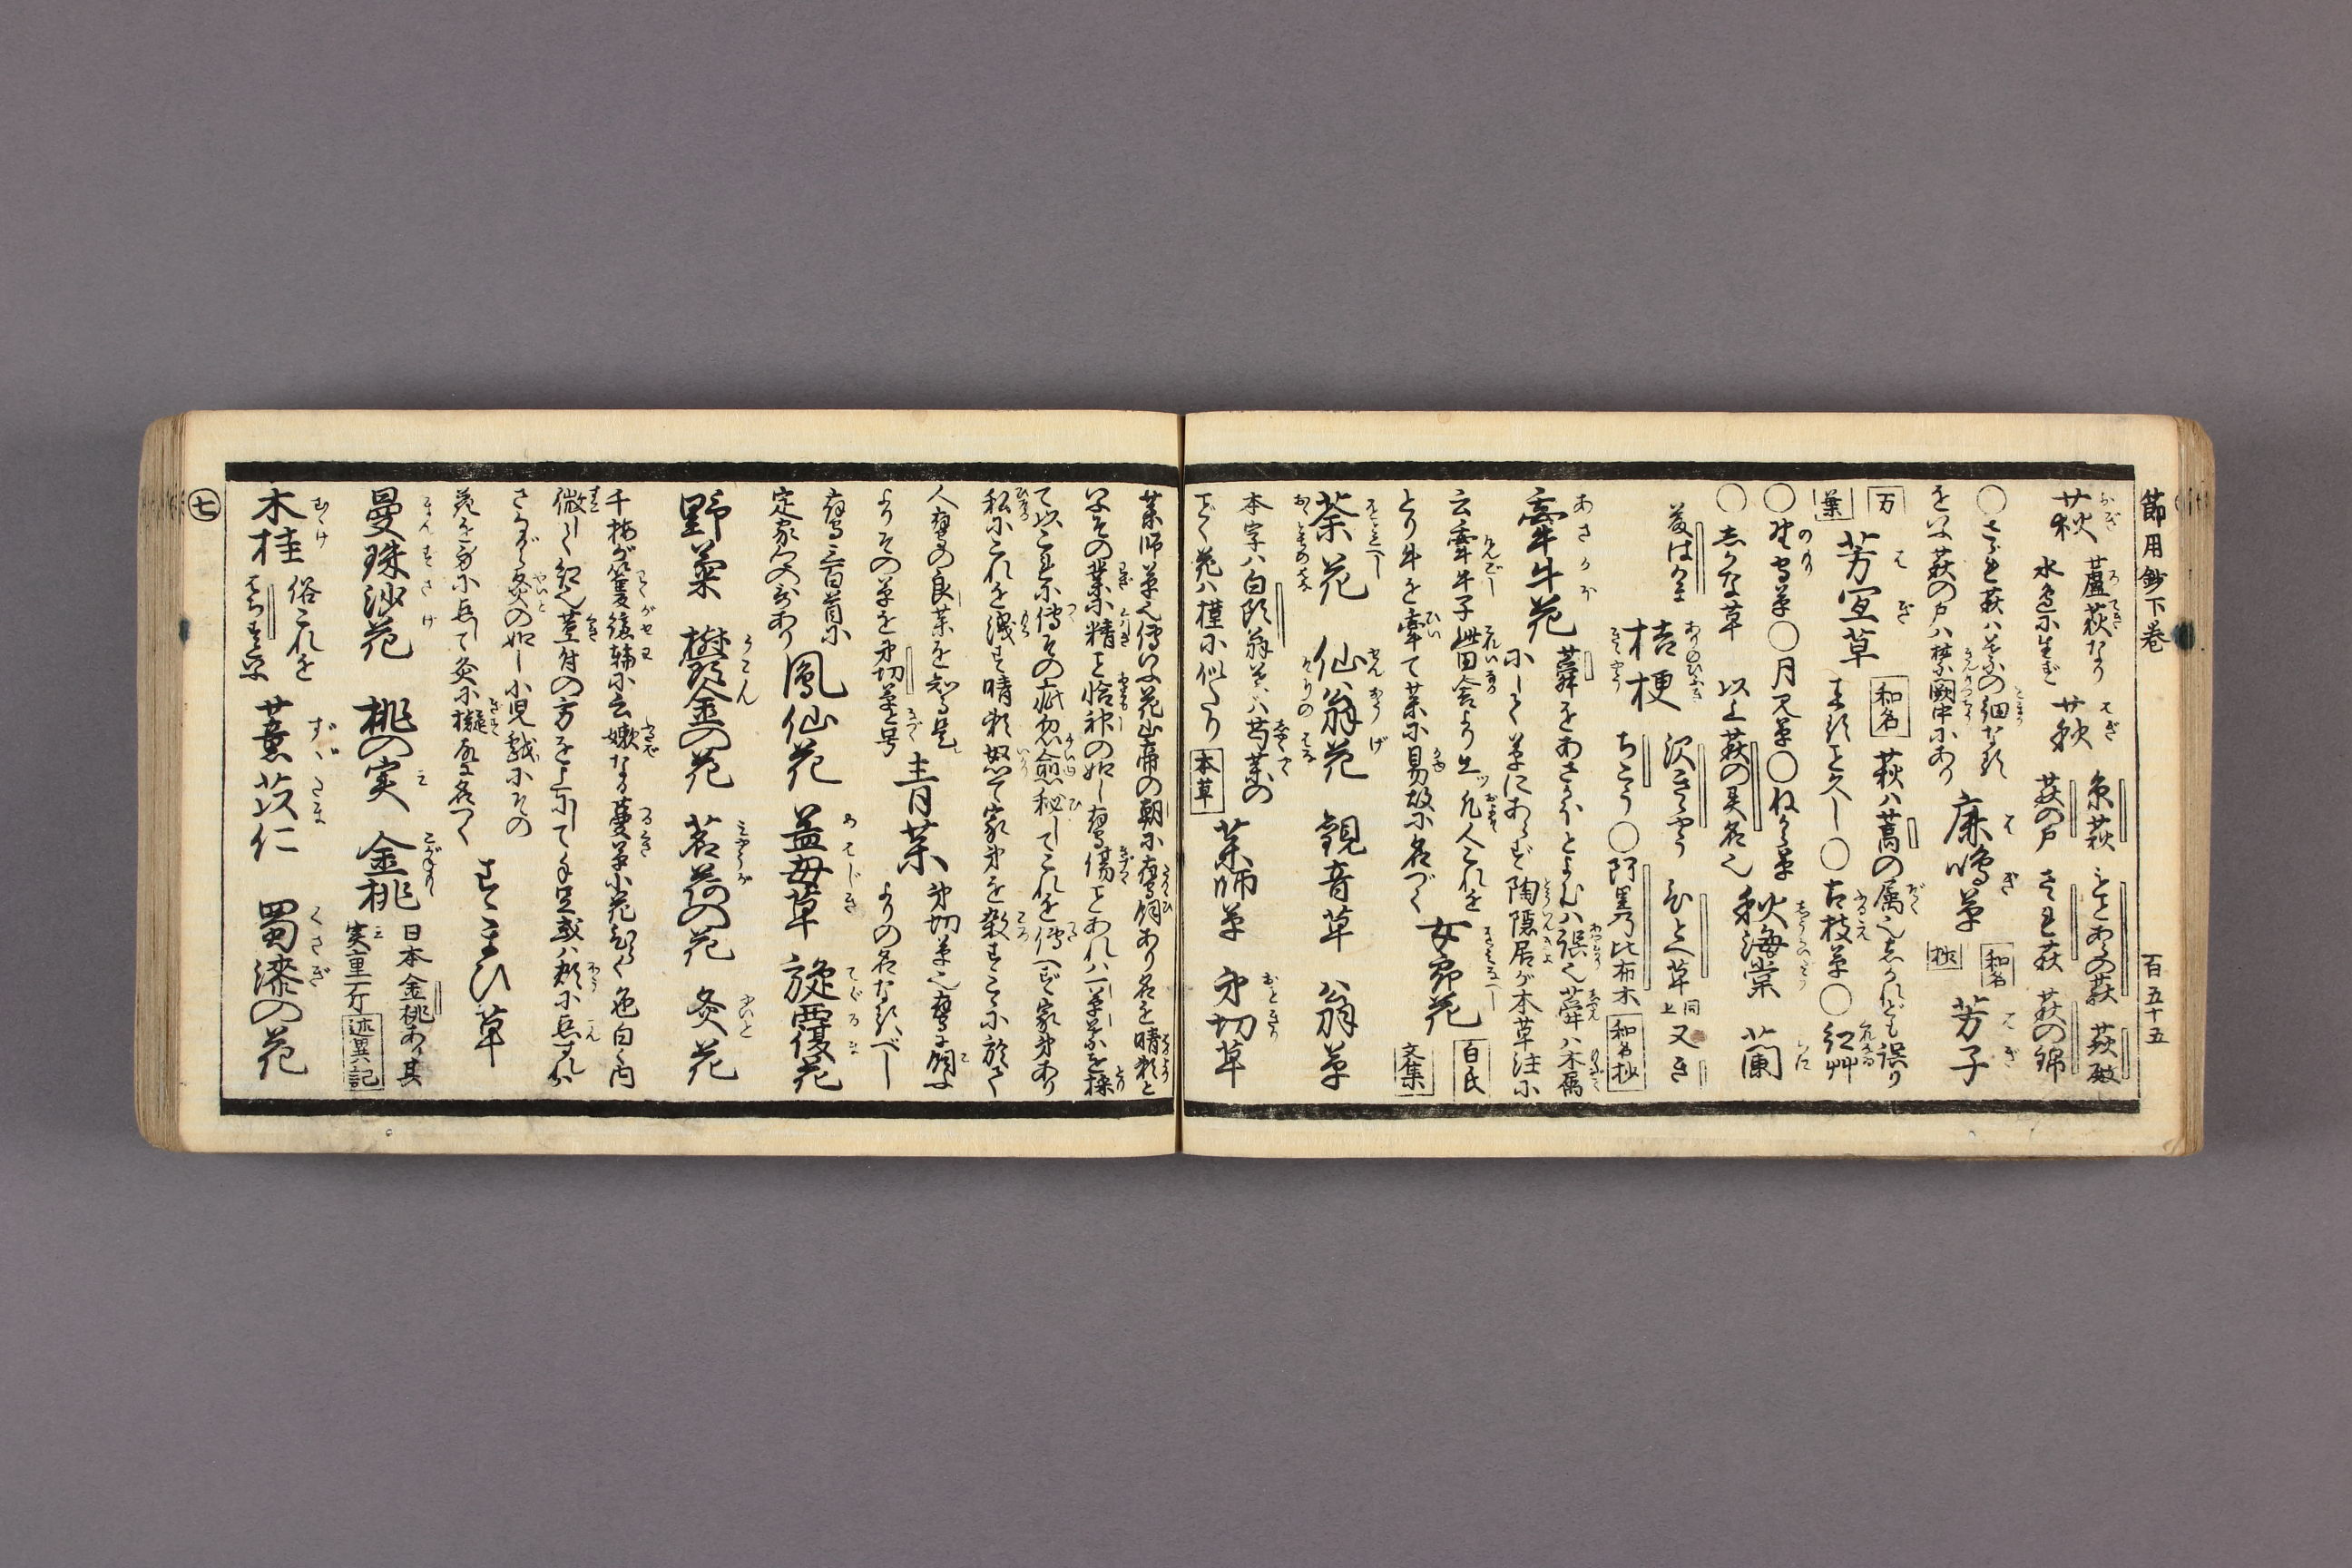 節用鈔下巻 百五十五
荻 蘆荻なり 糸萩 もとあらの萩 萩殿
水邉に生ず 萩 萩の戸 さゝれ萩 萩の錦
○さゝれ萩ハ 細 なり 鹿鳴草 和名 芳子
をいふ萩の戸ハ禁闕中にあり 抄
万葉 芳宜草 和名 萩ハ蒿の属也 しかれども誤り
来ること久し○古枝草○紅艸
○野守草○月見草○ねから草 秋海棠 蘭
○しかな草 以上萩の異名也
桔梗 沢きゝやう ひとへ草 同上 又き
ちこう○阿里乃比布木 和名抄
牽牛花 蕣をあさがほとよむハ誤也蕣ハ木属
にして草にあらず陶隠居が本草注に
云牽牛子此田舎より出ツ凡人これを 百氏
とり牛を牽て薬に易故に名づく 女郎花 文集
茶花 仙翁花 観音草 翁草
本字ハ白頭翁草ハ 葉の 薬師草 弟切草
ごとく花ハ槿に似たり 本草
薬師草也傳いふ花山帝の朝に鷹飼あり名を晴頼と
いふその業に精こと恰神の如し鷹傷ことあれハ一草を採
て以これに傅その疵忽愈秘してこれを傳へず家弟あり
私にこれを洩す晴頼怒て家弟を殺すこゝに於て
人鷹の良薬を知る是 青葉 弟切草也鷹に飼ふ
よりその草を弟切草と号 よりの名なるべし
鷹三百首に 鳳仙花 益母草 旋覆花
定家への哥あり
野菊 欝金の花 茗荷の花 灸花
千梅が篗纑輪に云嫩なる蔓草小花ひらく色白く内
微しく紅也莖付の方を上にして手足或ハ額に点ずれハ
さながら灸の如し小児戯にその
花を身に点て灸に擬 名づく すまひ草
曼珠沙花 桃の実 金桃 日本金桃あり其
実重一斤 述異記
木桂 俗これを はちす 薏苡仁 蜀漆の花
七